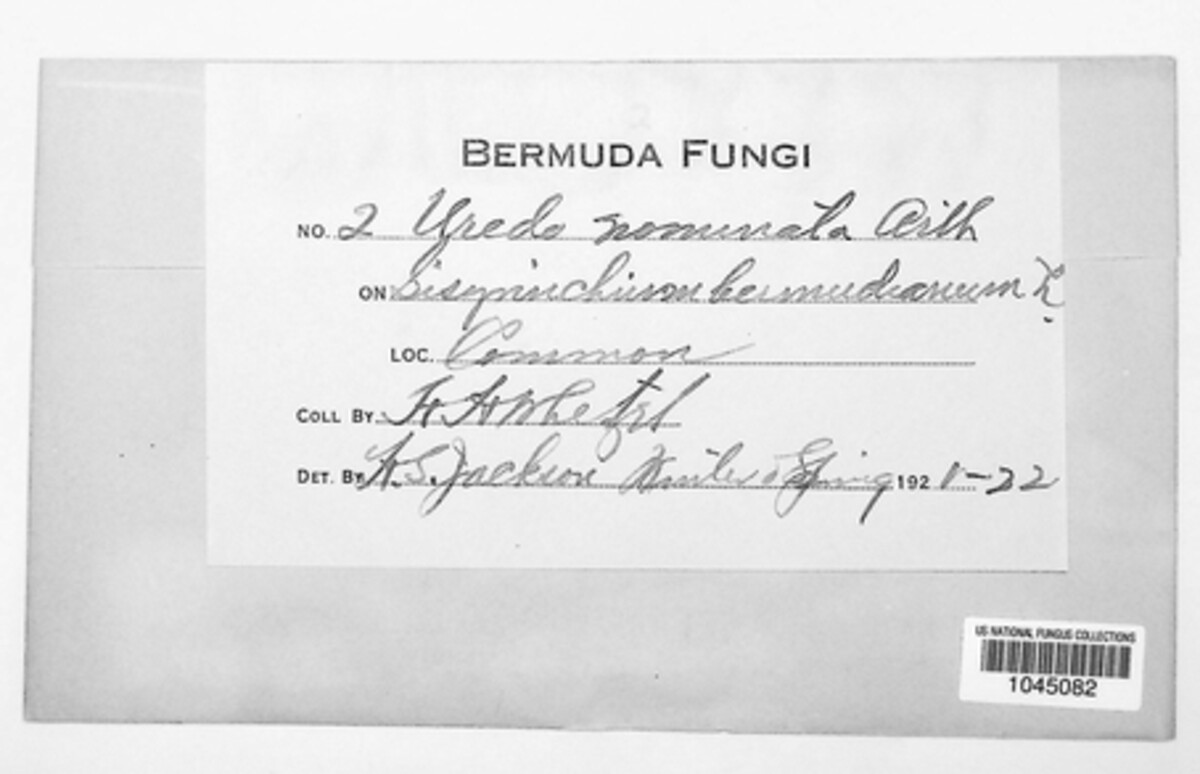 BERMUDA FUNGI
NO. 2 Uredo nominata Arth
ON Sisyrinchium bermudianum L.
LOC. Common
COLL BY. H H Whetzel
DET. BY H. S. Jackson Winter & Spring 1921-22
US NATIONAL FUNGUS COLLECTIONS
1045082